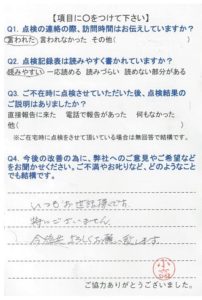 【項目に○をつけて下さい】
Q1. 点検の連絡の際、訪問時間はお伝えしていますか？
言われた　言われなかった　その他(　　　　　)
Q2. 点検記録表は読みやすく書かれていますか？
読みやすい　一応読める　読みづらい　読めない部分がある
Q3. ご不在時に点検させていただいた後、点検結果の
ご説明はありましたか？
直接報告に来た　電話で報告があった　何もなかった
他(　　　　　)
※ご在宅時に点検をさせて頂いている場合は無回答で結構です。
Q4. 今後の改善の為に、弊社へのご意見やご希望など
をお聞かせください。ご不満やお叱りなど、どのようなこと
でも結構です。
いつもお世話様です。
特にございません。
今後共よろしくお願い致します
ご協力ありがとうございました。